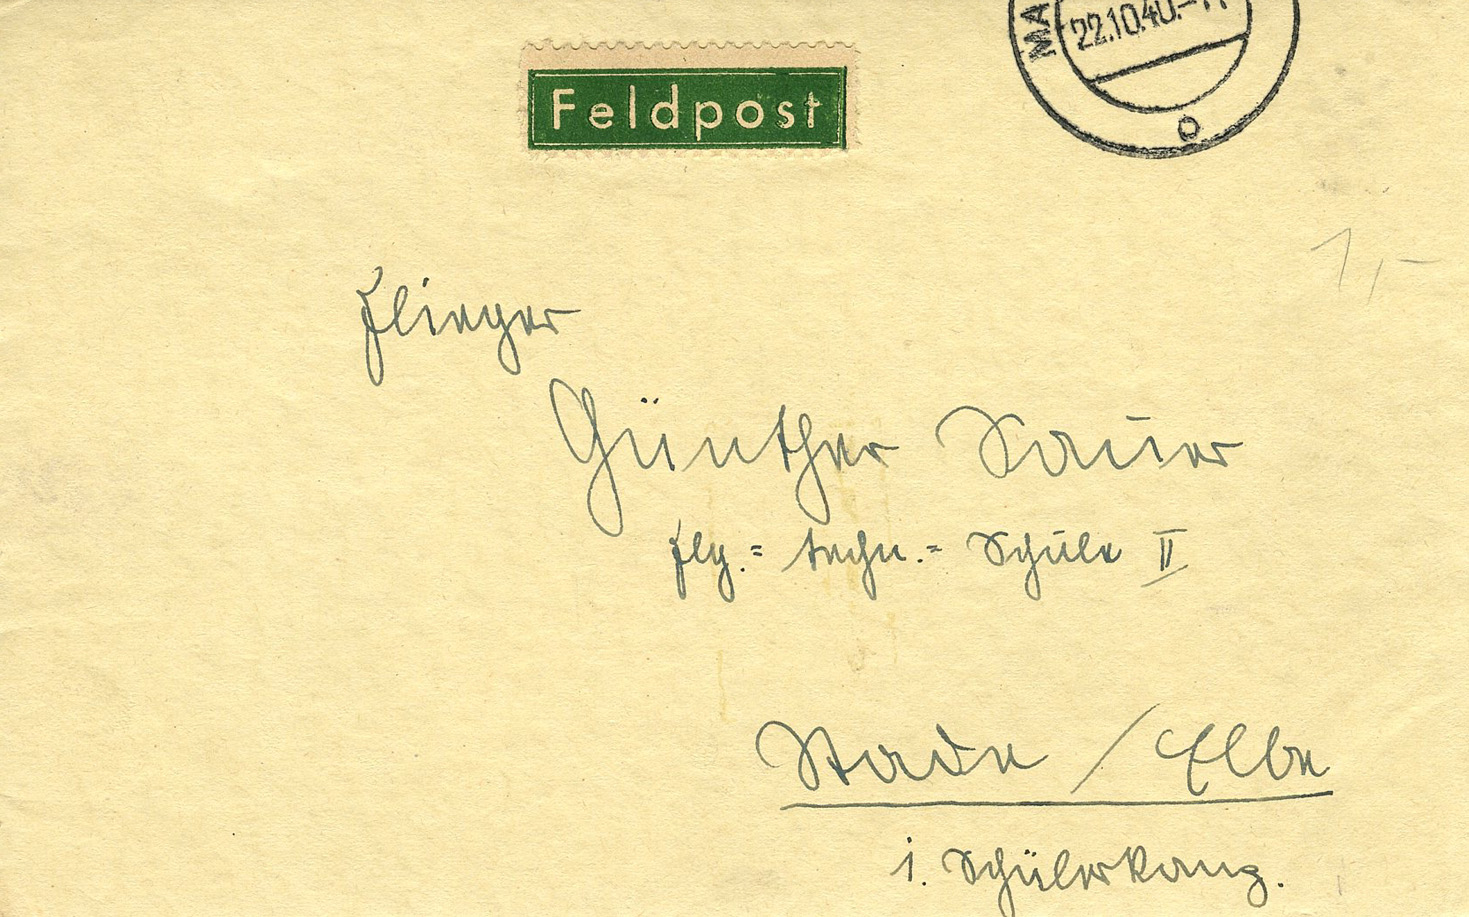 MA
22.10.40.-11
o
Feldpost
1,-
Flieger
Günther Sauer
Flg.= techn.= Schule II
Stade / Elbe
1. Schülerkomp.